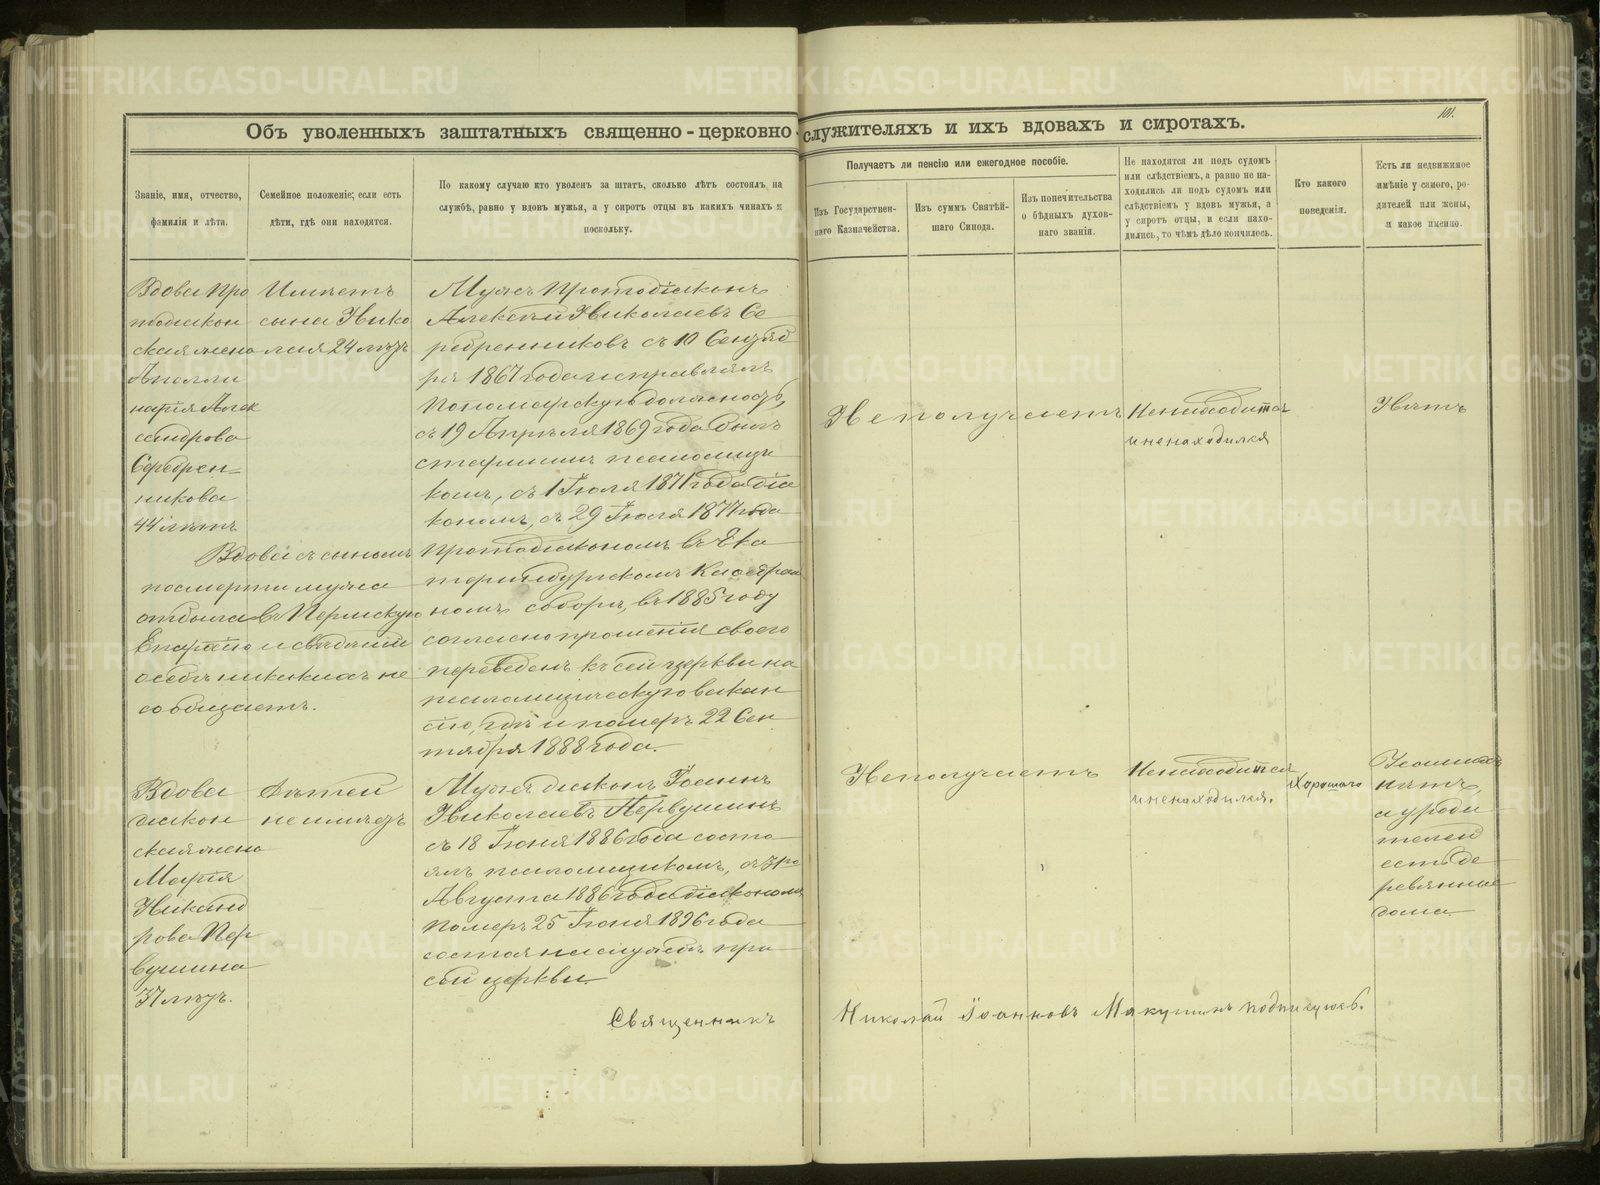 101.
Объ уволенныхъ заштатныхъ священно-церковно-служителяхъ и ихъ вдовахъ и сиротахъ.
Званіе, имя, отчество,
фамилія и лѣта.
Семейное положеніе; если есть
дѣти, гдѣ они находятся.
По какому случаю кто уволенъ за штатъ, сколько лѣтъ состоялъ на
службѣ, равно у вдовъ мужья, а у сиротъ отцы въ какихъ чинахъ и
поскольку.
Получаетъ ли пенсію или ежегодное пособіе.
Изъ Государствен-
наго Казначейства.
Изъ суммъ Святѣй-
шаго Синода.
Изъ попечительства
о бѣдныхъ духов-
наго званія.
Не находятся ли подъ судомъ
или слѣдствіемъ, а равно не на-
ходились ли подъ судомъ или
слѣдствіемъ у вдовъ мужья, а
у сиротъ отцы, и если нахо-
дились, то чѣмъ дѣло кончилось.
Кто какого
поведенія.
Есть ли недвижимое
имѣніе у самого, ро-
дителей или жены,
и какое именно.
Вдова про
тодіакон
ская жена
Аполли
нарія Алек
сандрова
Серебрен=
никова
44 лѣтъ
Имѣетъ
сына Нико
лая 24 лѣтъ
Вдова съ сыномъ
по смерти мужа
отбыла въ Пермскую
Епархію и свѣдѣній
о себѣ никакихъ не
сообщаетъ.
Мужъ Протодіаконъ
Алексѣй Николаевъ Се
ребренниковъ съ 10 Сентяб
ря 1867 года исправлялъ
Пономарскую должность,
съ 19 Апрѣля 1869 года былъ
старшимъ псаломщи
комъ, съ 1 Іюля 1871 года діа
кономъ, съ 29 Іюля 1877 года
протодіакономъ въ Ека
теринбургскомъ Каѳедраль
номъ соборѣ, въ 1885 году
согласно прошенія своего
переведенъ къ сей церкви на
псаломщическую вакан
сію, гдѣ и померъ 22 Сен
тября 1888 года.
Не получаетъ
Не находится
и не находился
Нѣтъ
Вдова
діакон
ская жена
Марія
Никанд
рова Пер
вушина
37 лѣтъ.
Дѣтей
не имѣетъ
Мужъ діаконъ Іоаннъ
Николаевъ Первушинъ
съ 18 Іюня 1886 года состо
ялъ псаломщикомъ, съ 3го
Августа 1886 года діакономъ
Померъ 25 Іюня 1896 года
состоя на службѣ при
сей церкви.
Не получаетъ
Не находится
и не находился.
Хорошаго
У самой
нѣтъ,
а у роди
телей
есть де
ревянные
дома.
Священникъ Николай Іоанновъ Макушинъ подписуюсь.
METRIKI.GASO-URAL.RU